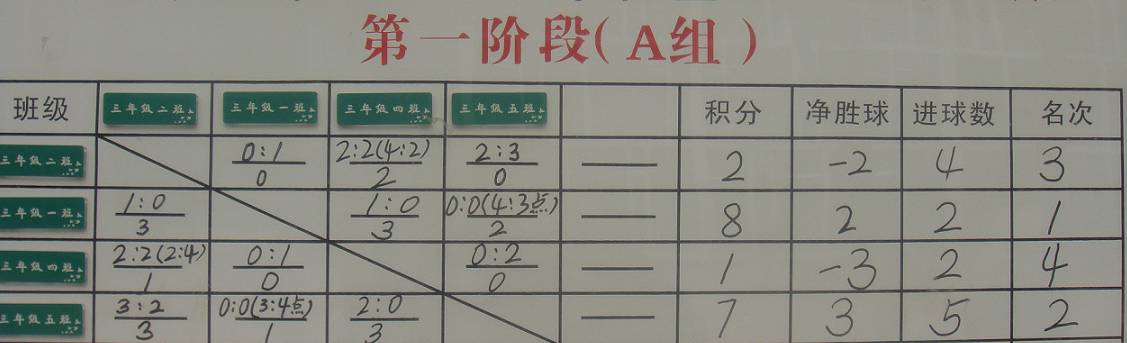 第一阶段(A组)
班级 三年级二班 三年级一班 三年级四班 三年级五班 积分 净胜球 进球数 名次
三年级二班 0:1 0 2:2(4:2) 2 2:3 0 2 -2 4 3
三年级一班 1:0 3 1:0 3 0:0(4:3点) 2 8 2 2 1
三年级四班 2:2(2:4) 1 0:1 0 0:2 0 1 -3 2 4
三年级五班 3:2 3 0:0(3:4点) 1 2:0 3 7 3 5 2